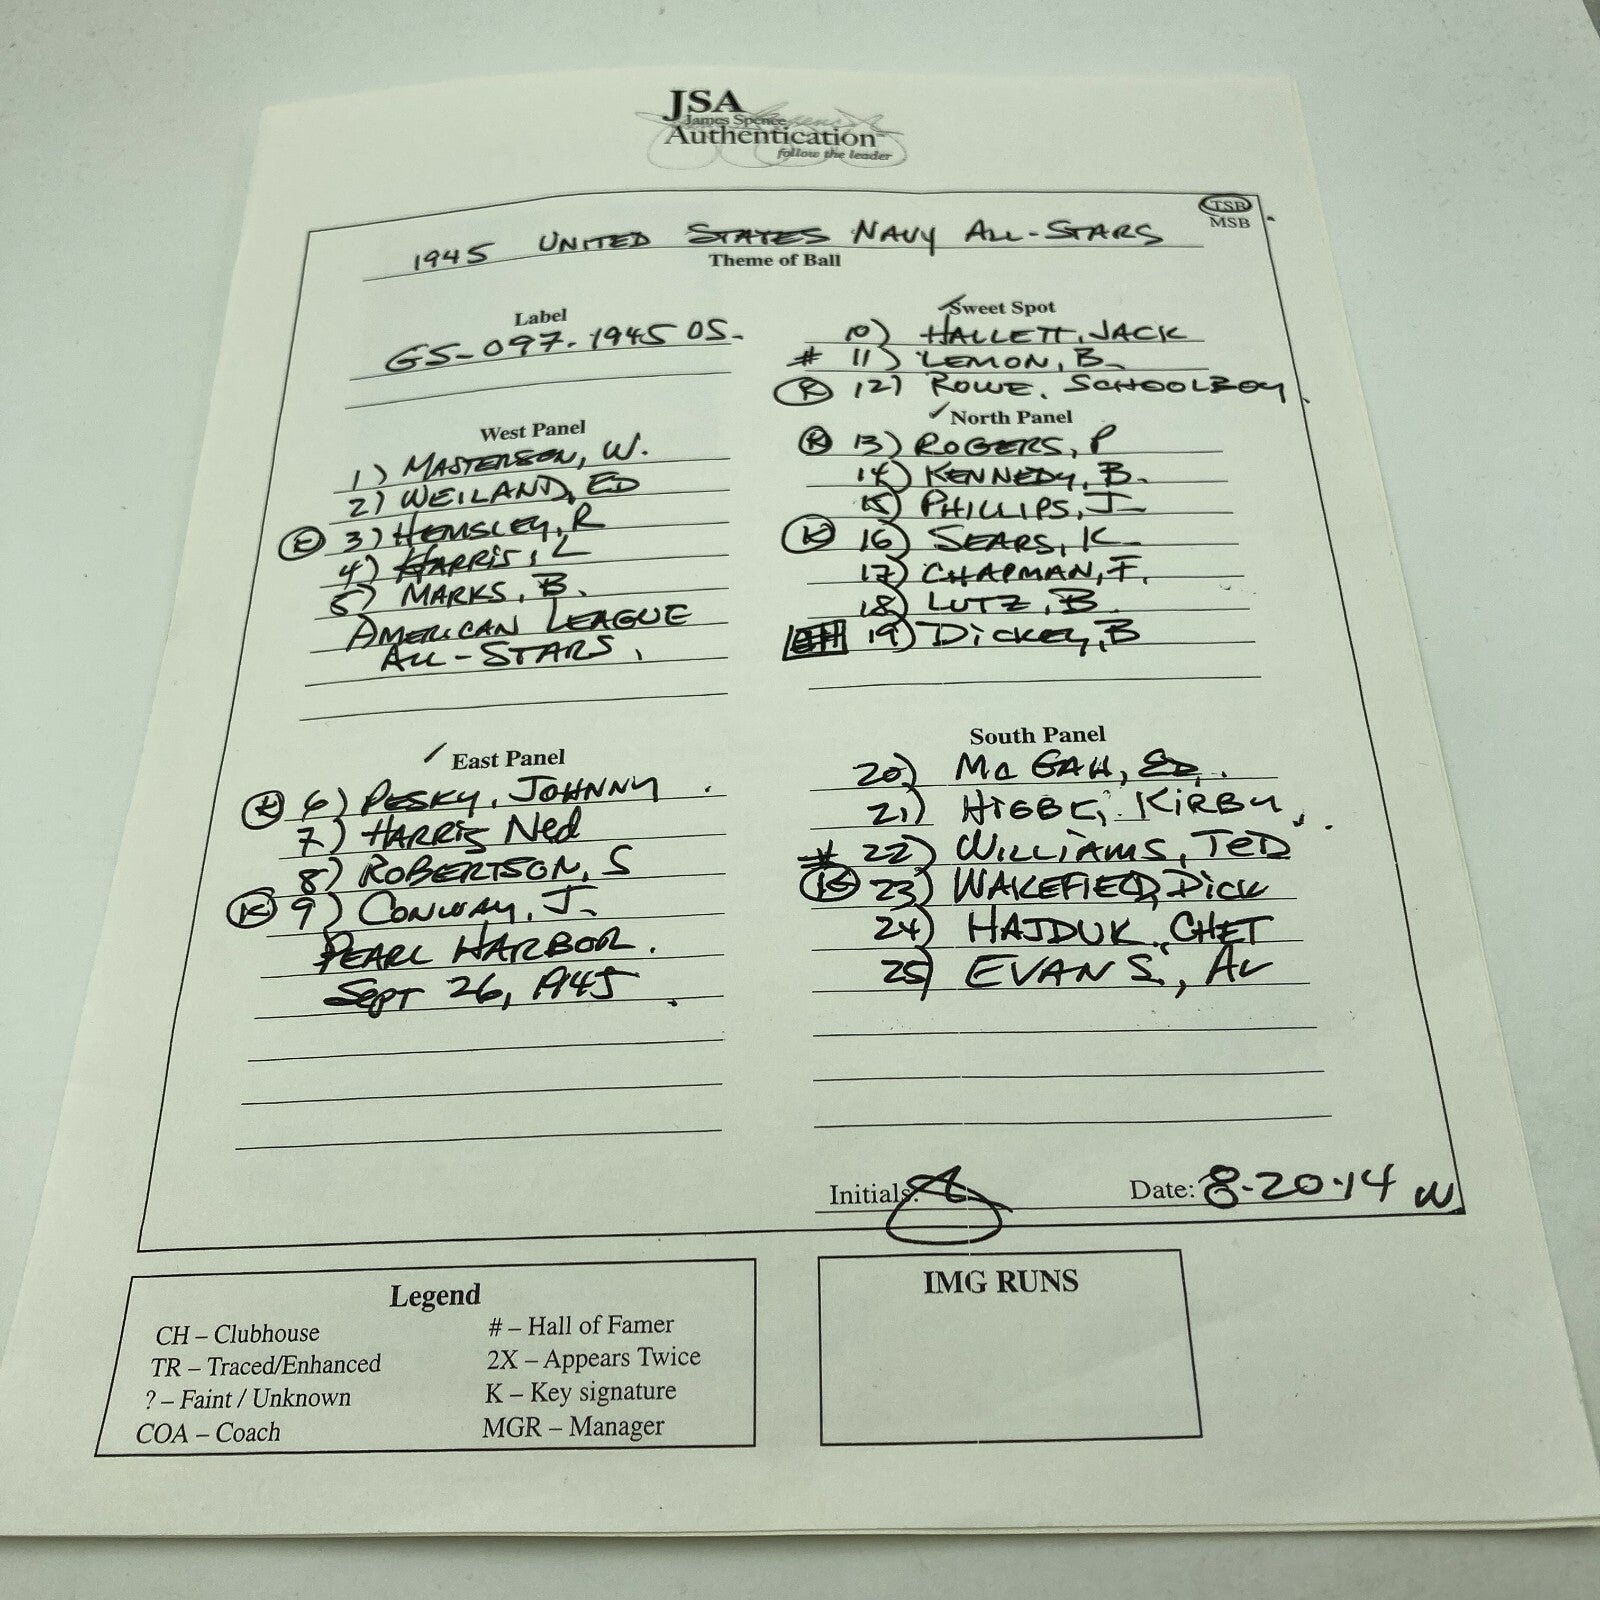 JSA
James Spence
Authentication
follow the leader
TSB
MSB
1945 UNITED STATES NAVY ALL-STARS
Theme of Ball
Label
GS-097.1945 OS-
West Panel
1) MASTERSON, W.
2) WEILAND, ED
K 3) HEMSLEY, R
4) HARRIS, L
5) MARKS, B.
AMERICAN LEAGUE
ALL-STARS.
East Panel
K 6) PESKY, JOHNNY
7) HARRIS Ned
8) ROBERTSON, S
K 9) CONWAY, J.
PEARL HARBOR.
SEPT 26, 1945
Sweet Spot
10) HALLETT, JACK
# 11) LEMON, B.
K 12) ROWE, SCHOOLBOY
North Panel
K 13) ROGERS, P
14) KENNEDY, B.
15) PHILLIPS, J-
K 16) SEARS, K-
17) CHAPMAN, F.
18) LUTZ, B.
19) DICKEY, B
South Panel
20) Mc GAH, ED.
21) HIGBE, KIRBY
# 22) WILLIAMS, TED
K 23) WAKEFIELD, DICK
24) HAJDUK, CHET
25) EVANS, AL
Initials:
Date: 8-20-14
Legend
CH – Clubhouse
TR – Traced/Enhanced
? – Faint / Unknown
COA – Coach
# – Hall of Famer
2X – Appears Twice
K – Key signature
MGR – Manager
IMG RUNS